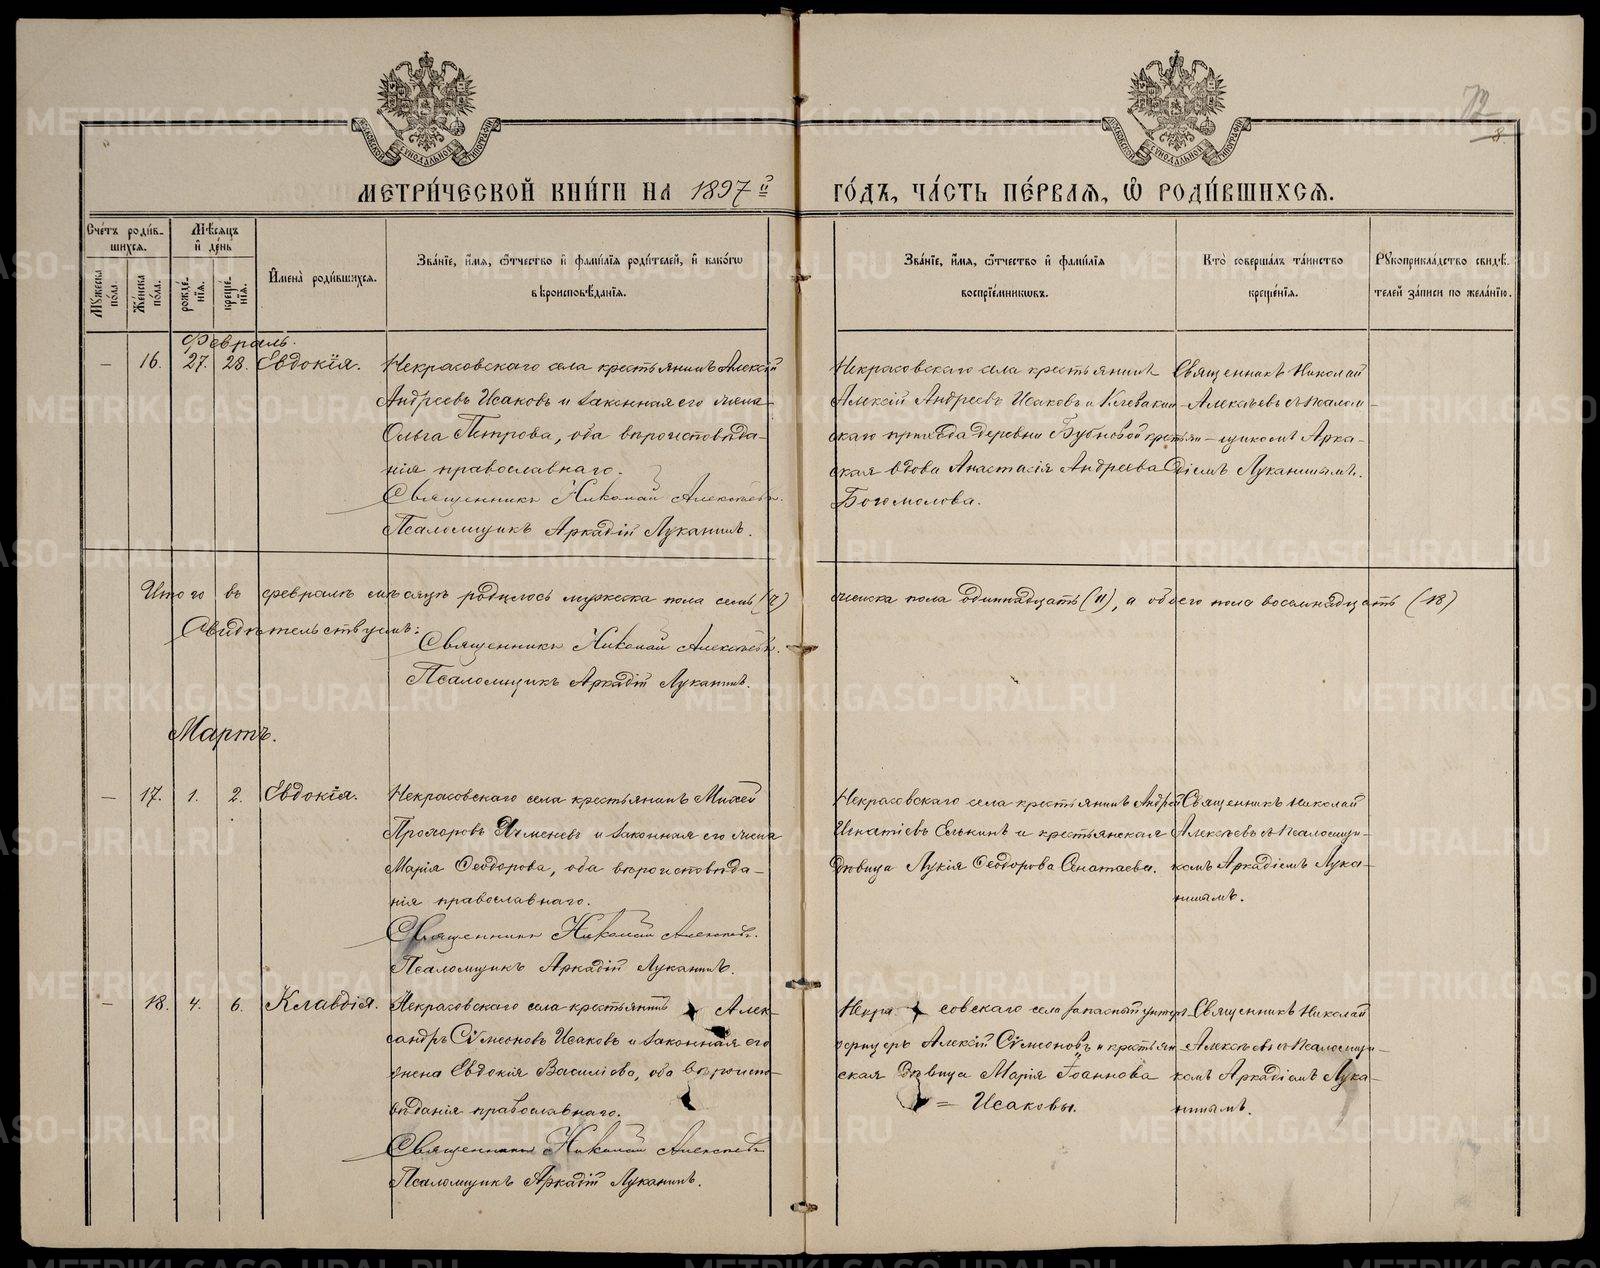 МОСКОВСКОЙ СѴНОДАЛЬНОЙ ТИПОГРАФИИ
МОСКОВСКОЙ СѴНОДАЛЬНОЙ ТИПОГРАФИИ
МЕТРИ́ЧЕСКОЙ КНИ́ГИ НА 1897й ГО́ДЪ, ЧА́СТЬ ПЕ́РВАЯ, Ѡ РОДИ́ВШИХСЯ.
Сче́тъ роди́в-
шихся.
Му́жеска по́ла.
Же́нска по́ла.
Мѣ́сяцъ
и де́нь
рожде́-
нія.
креще́-
нія.
И́мена роди́вшихся.
Зва́ніе, и́мя, ѻ́тчество и фами́лія роди́телей, и како́гѡ
вѣроисповѣ́данія.
Зва́ніе, и́мя, ѻ́тчество и фами́лія
воспріе́мникѡвъ.
Кто̀ соверша́лъ та́инство
креще́нія.
Рꙋкоприкла́дство свидѣ́-
телей за́писи по жела́нію.
Февраль.
— 16. 27. 28. Евдокія.
Некрасовскаго села крестьянинъ Алексій
Андреевъ Исаковъ и законная его жена
Ольга Петрова, оба вѣроисповѣда-
нія православнаго.
Священникъ Николай Алексѣевъ.
Псаломщикъ Аркадій Луканинъ.
Некрасовскаго села крестьянинъ
Алексій Андреевъ Исаковъ и Клевакин-
скаго прихода деревни Бубновой крестьян-
ская вдова Анастасія Андреева
Богомолова.
Священникъ Николай
Алексѣевъ съ Псалом-
щикомъ Арка-
діемъ Луканинымъ.
Итого въ февралѣ мѣсяцѣ родилось мужеска пола семь (7) женска пола одиннадцать (11), а обоего пола восемнадцать (18)
Свидѣтельствуемъ:
Священникъ Николай Алексѣевъ.
Псаломщикъ Аркадій Луканинъ.
Мартъ.
— 17. 1. 2. Евдокія.
Некрасовскаго села крестьянинъ Михей
Прохоровъ Ячменевъ и законная его жена
Марія Ѳеодорова, оба вѣроисповѣда-
нія православнаго.
Священникъ Николай Алексѣевъ.
Псаломщикъ Аркадій Луканинъ.
Некрасовскаго села крестьянинъ Андрей
Игнатіевъ Елькинъ и крестьянская
дѣвица Лукія Ѳеодорова
Священникъ Николай
Алексѣевъ съ Псаломщи-
комъ Аркадіемъ Лука-
нинымъ.
— 18. 4. 6. Клавдія.
Некрасовскаго села крестьянинъ Алек-
сандръ Сѵмеоновъ Исаковъ и законная его
жена Евдокія Василіева, оба вѣроиспо-
вѣданія православнаго.
Священникъ Николай Алексѣевъ
Псаломщикъ Аркадій Луканинъ.
Некрасовскаго села запасный унтеръ-
офицеръ Алексій Сѵмеоновъ и крестьян-
ская дѣвица Марія Іоаннова
= Исаковы.
Священникъ Николай
Алексѣевъ съ Псаломщи-
комъ Аркадіемъ Лука-
нинымъ.
METRIKI.GASO-URAL.RU